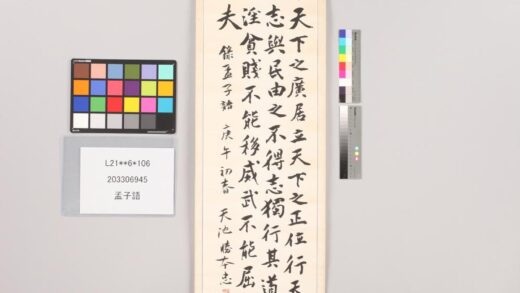 天下之廣居立天下之正位行天
志與民由之不得志獨行其道
淫貧賤不能移威武不能屈
夫
錄孟子語 庚午初春 天池勝本忠
L21**6*106
203306945
孟子語